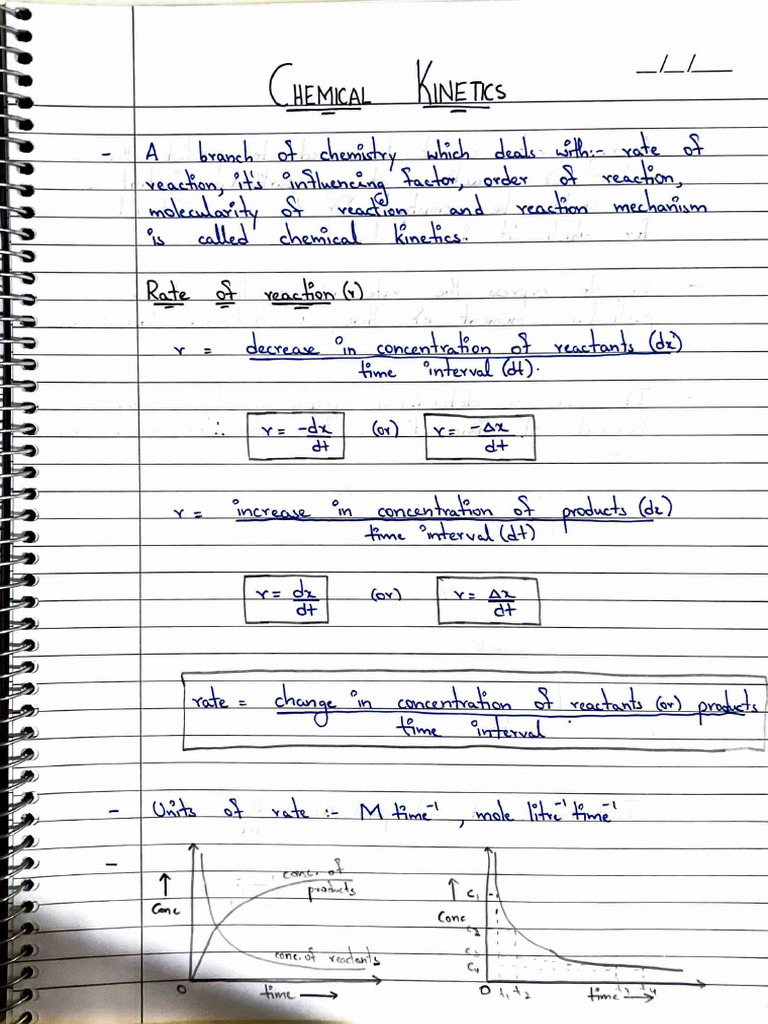 __/__/__
CHEMICAL KINETICS
- A branch of chemistry which deals with:- rate of
reaction, it's influencing factor, order of reaction,
molecularity of reaction and reaction mechanism
is called chemical kinetics.
Rate of reaction (r)
r = decrease in concentration of reactants (dx)
time interval (dt).
∴ r = -dx/dt (or) r = -Δx/dt
r = increase in concentration of products (dx)
time interval (dt)
r = dx/dt (or) r = Δx/dt
rate = change in concentration of reactants (or) products
time interval
- Units of rate :- M time⁻¹, mole litre⁻¹ time⁻¹
-
conc. of
products
↑
Conc
conc. of reactants
0 time →
↑ C₁
Conc
C₂
C₃
C₄
0 t₁ t₂ time → t₃ t₄